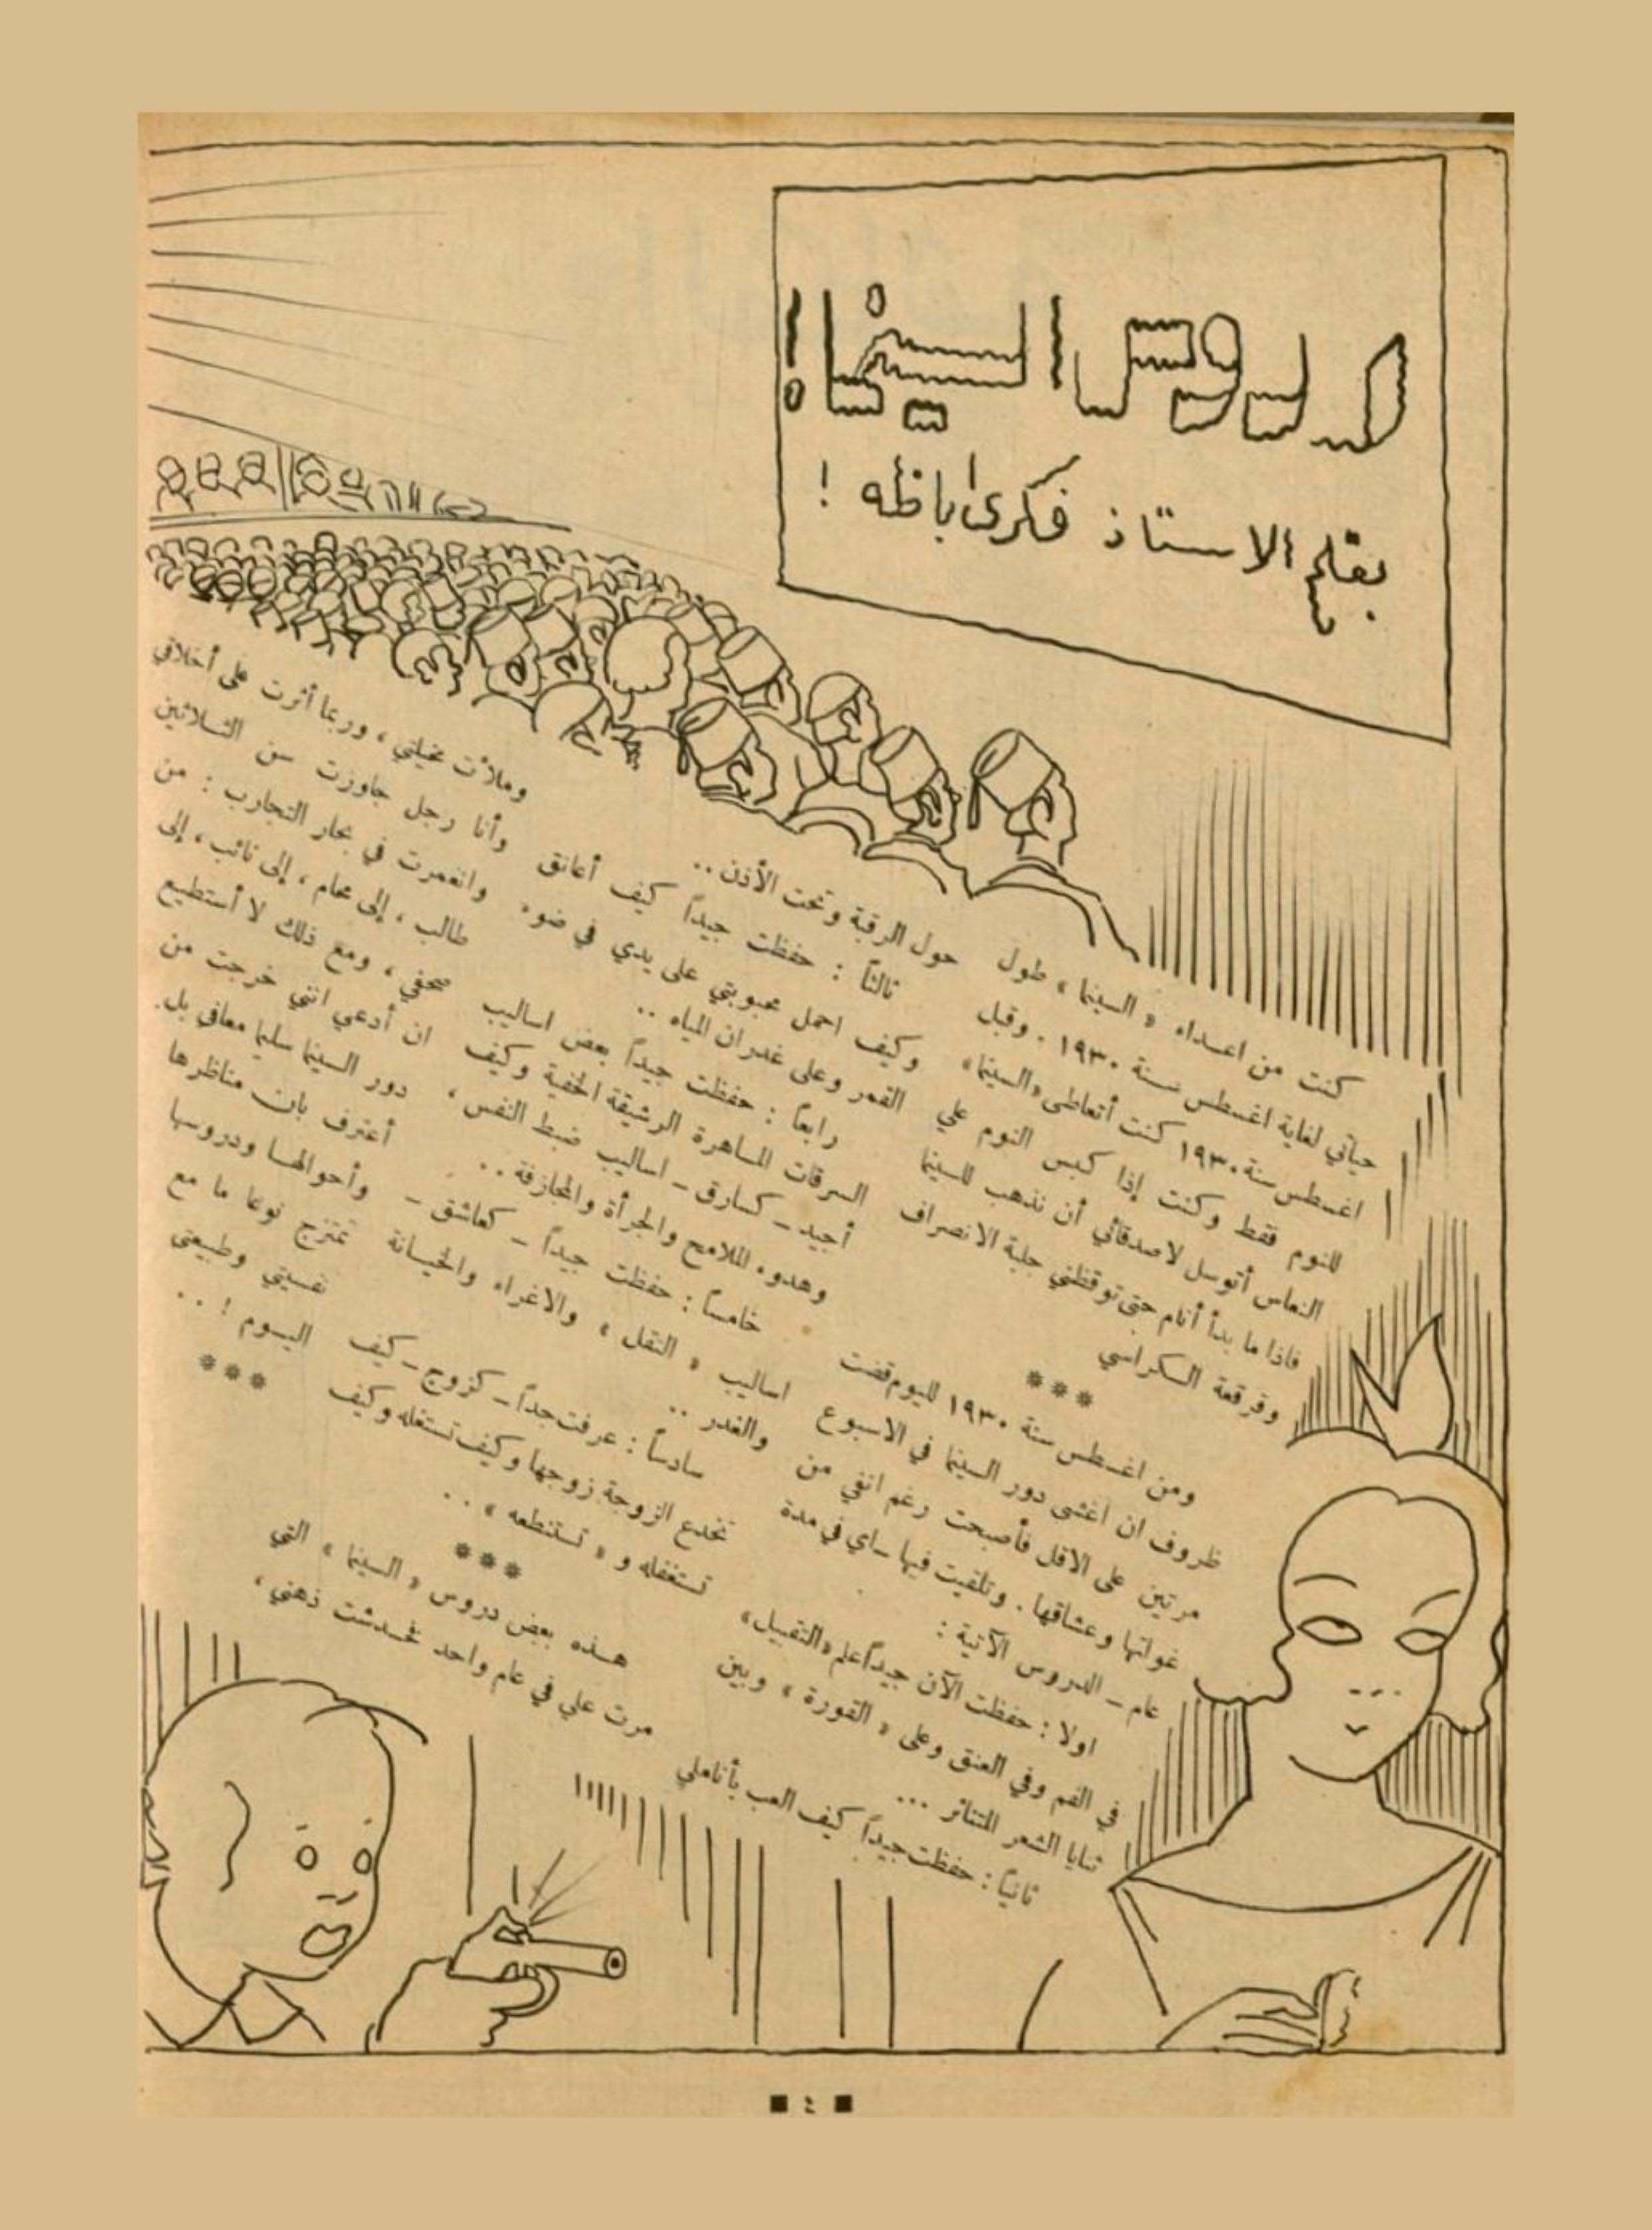 دروس السينما!
بقلم الاستاذ فكرى اباظه !
كنت من اعداء « السينما » طول
حياتي لغاية اغسطس سنة ١٩٣٠ . وقبل
اغسطس سنة ١٩٣٠ كنت أتعاطى «السينما»
للنوم فقط وكنت إذا كبس النوم علي
النعاس أتوسل لاصدقائي أن نذهب للسينما
فاذا ما بدأ أنام حتى توقظني جلبة الانصراف
وقرقعة الكراسي
***
ومن اغسطس سنة ١٩٣٠ لليوم قضت
ظروف ان اغشى دور السينما في الاسبوع
مرتين على الاقل فأصبحت رغم انفي من
غواتها وعشاقها . وتلقيت فيها ساي في مدة
عام ـ الدروس الآتية :
اولا : حفظت الآن جيداً علم «التقبيل»
في الفم وفي العنق وعلى « القورة » وبين
ثنايا الشعر المتناثر ...
ثانياً : حفظت جيداً كيف العب بأناملي
حول الرقبة وتحت الأذن ..
ثالثاً : حفظت جيداً كيف أعانق
وكيف احمل محبوبتي على يدي في ضوء
القمر وعلى غدران المياه ..
رابعاً : حفظت جيداً بعض اساليب
السرقات الماهرة الرشيقة الخفية وكيف
أجيد ـ كسارق ـ اساليب ضبط النفس ،
وهدوء الملامح والجرأة والمجازفة ..
خامساً : حفظت جيداً ـ كعاشق ـ
اساليب « التقل » والاغراء والخيانة
والغدر ..
سادساً : عرفت جداً ـ كزوج ـ كيف
تخدع الزوجة زوجها وكيف تستغله وكيف
تستغفله و « تستنطعه » ..
***
هذه بعض دروس « السينما » التي
مرت علي في عام واحد فخدشت ذهني ،
وملأت مخيلتي ، وربما أثرت على أخلاقي
وأنا رجل جاوزت سن الثلاثين
وانغمرت في بحار التجارب : من
طالب ، إلى محام ، إلى نائب ، إلى
صحفي ، ومع ذلك لا أستطيع
ان أدعي انني خرجت من
دور السينما سليما معافى بل
أعترف بان مناظرها
وأحوالها ودروسها
تمتزج نوعا ما مع
نفسيتي وطبيعتي
اليوم ! ..
***
٤